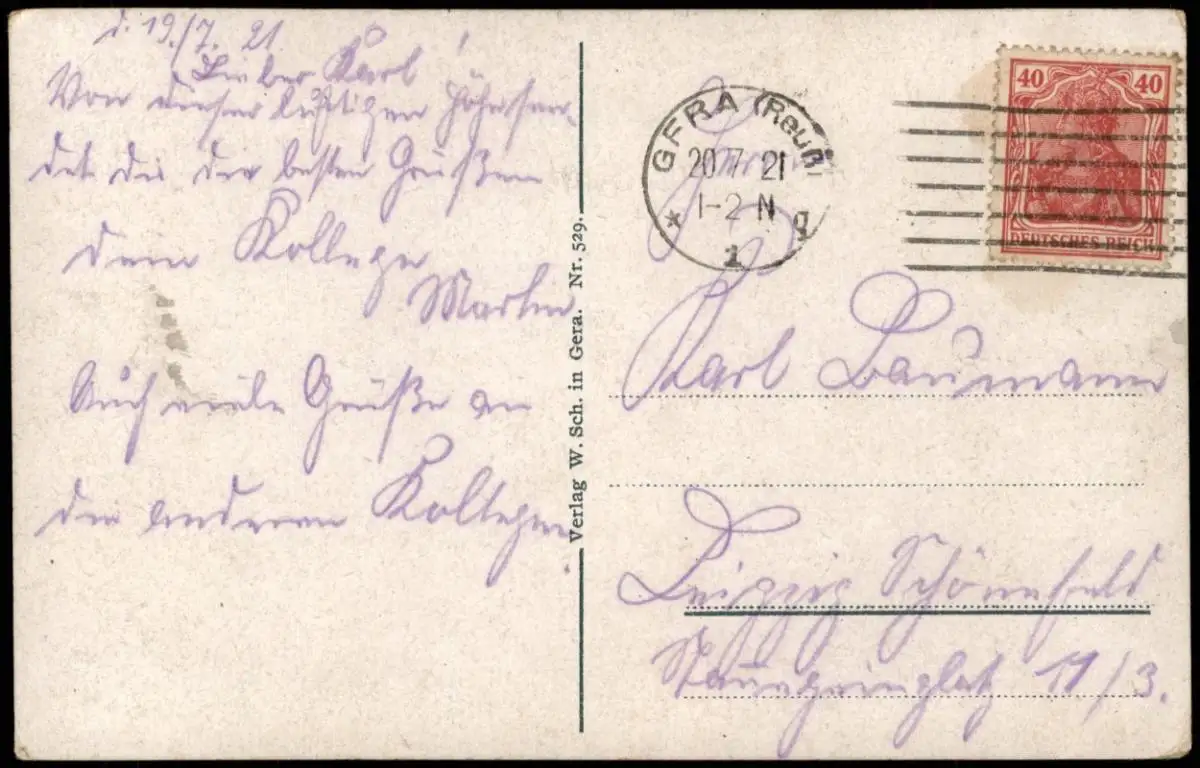 d. 19./7. 21.
Lieber Karl!
Von dieser luftigen Höhe sen-
det dir die besten Grüße
dein Kollege
Martin
Auch viele Grüße an
die anderen Kollegen.
Verlag W. Sch. in Gera. Nr. 529.
GERA (Reuß)
20 7 21
1-2 N
* 1 g
40 40
DEUTSCHES REICH
Herrn
Karl Baumann
Leipzig Schönefeld
11/3.